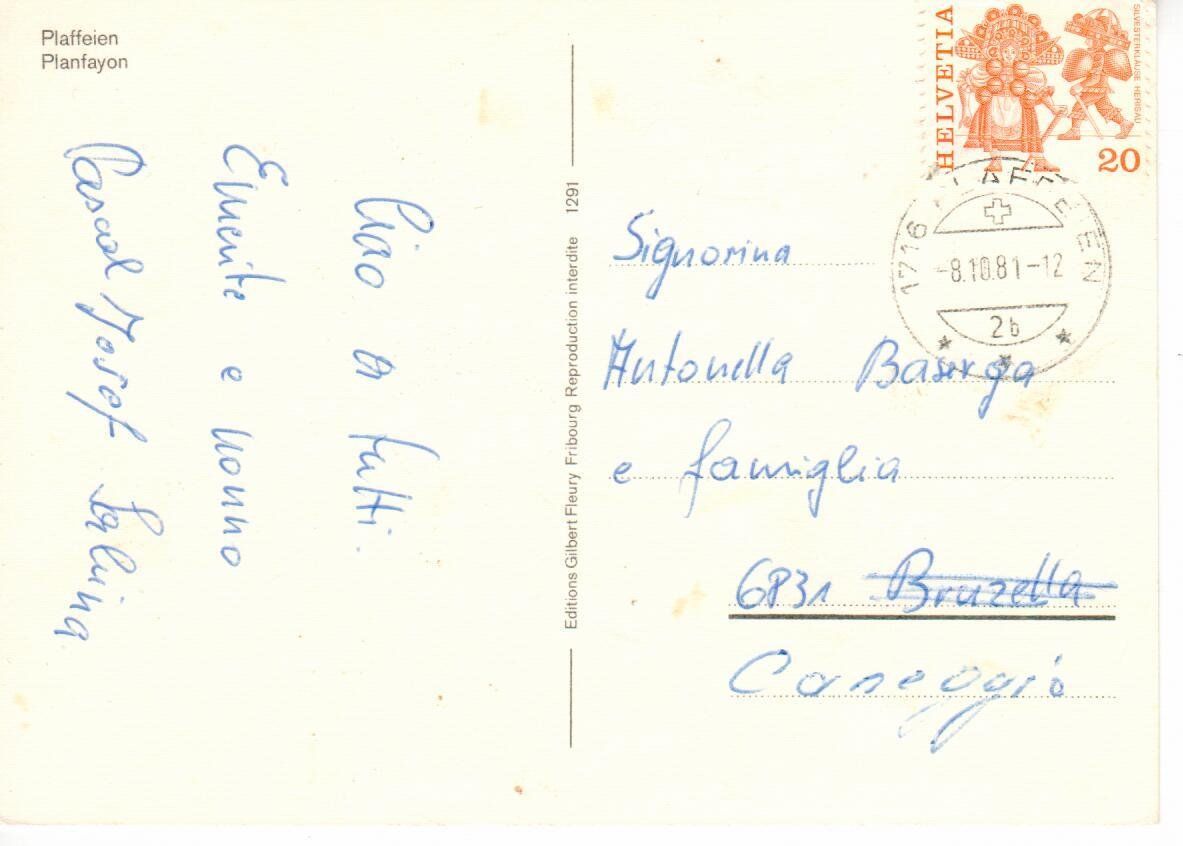 Plaffeien
Planfayon
Ciao a tutti.
e nonno
Josef
Editions Gilbert Fleury Fribourg Reproduction interdite 1291
HELVETIA
SILVESTERKLÄUSE HERISAU
20
1716 PLAFFEIEN
-8.10.81-12
2b
Signorina
Antonella Baserga
e famiglia
6831 Bruzella
Caneggio